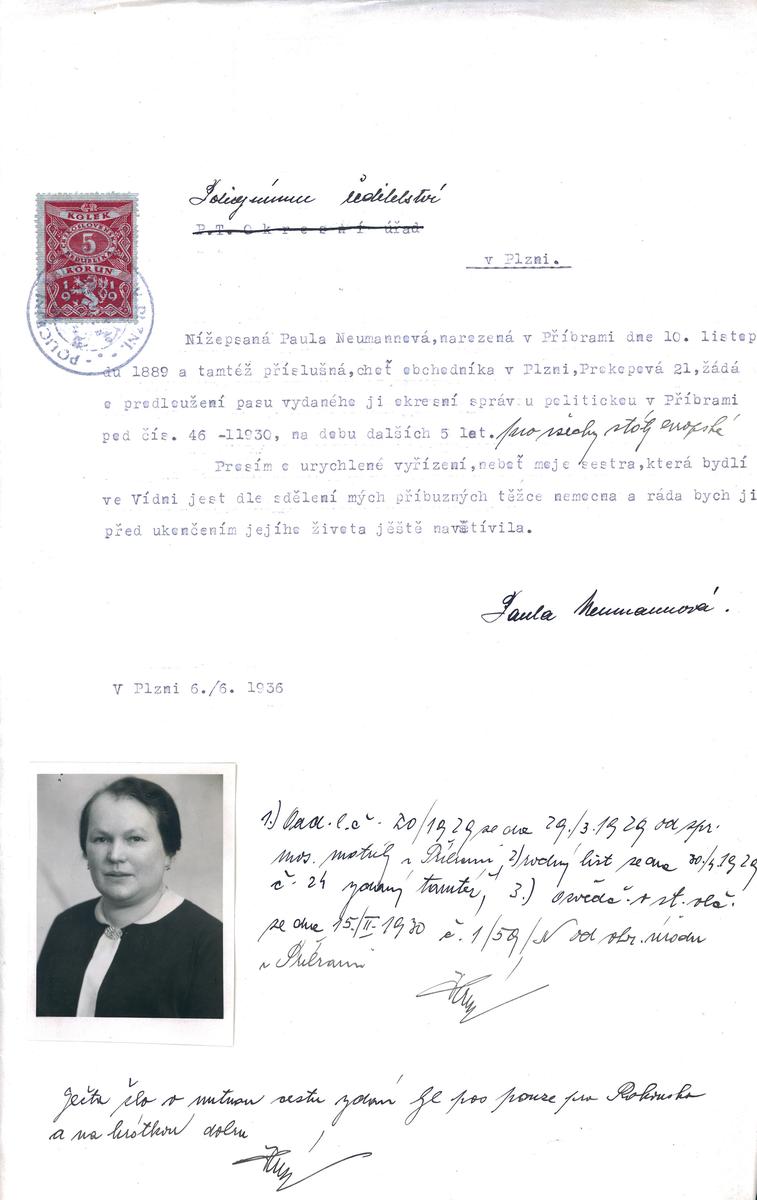 Policejnímu ředitelství
P.T. Okresní úřad
v Plzni.
ČR
KOLEK
ČESKOSLOVENSKÁ
5
REPUBLIKA
KORUN
1919
V PLZNI · POLICEJNÍ
Nížepsaná Paula Neumannová,narezená v Příbrami dne 10. listop
du 1889 a tamtéž příslušná,cheť obchodníka v Plzni,Prokopová 21,žádá
o predloužení pasu vydaného ji okresní správou politickou v Příbrami
pod čís. 46 -11930, na dobu dalších 5 let. pro všechy státy evropské
Presím o urychlené vyřízení,neboť moje sestra,která bydlí
ve Vídni jest dle sdělení mých příbuzných těžce nemocna a ráda bych ji
před ukončením jejího života jěště navštívila.
Paula Neumannová.
V Plzni 6./6. 1936
1.) Odd. l. č. 20/1929 ze dne 29./3.1929 od spr.
mos. matrik v Příbrami, 2) rodný list ze dne 30./4.1929
č. 24 vydaný tamtéž, 3.) Osvědč. o st. obč.
ze dne 15./II.1930 č. 1/59/N od okr. úřadu
v Příbrami
Ježto šlo o nutnou cestu vydán pas pouze pro Rakousko
a na krátkou dobu